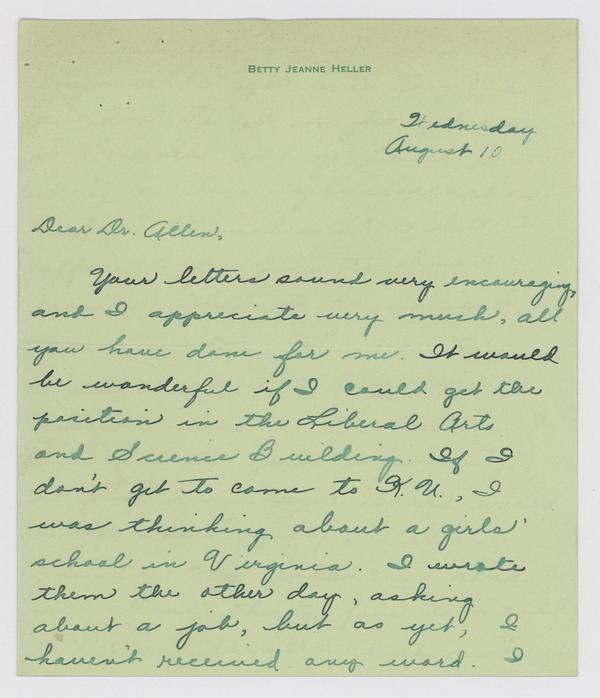 BETTY JEANNE HELLER
Wednesday
August 10
Dear Dr. Allen,
Your letters sound very encouraging,
and I appreciate very much, all
you have done for me. It would
be wonderful if I could get the
position in the Liberal Arts
and Science Building. If I
don't get to come to K.U., I
was thinking about a girls'
school in Virginia. I wrote
them the other day, asking
about a job, but as yet, I
haven't received any word. I